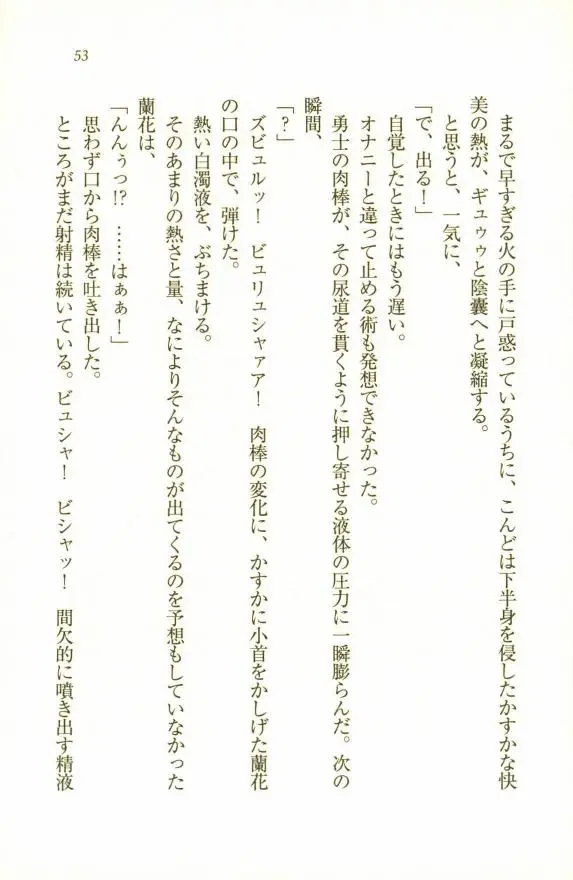 53
まるで早すぎる火の手に戸惑っているうちに、こんどは下半身を侵したかすかな快
美の熱が、ギュゥゥと陰嚢へと凝縮する。
と思うと、一気に、
「で、出る！」
自覚したときにはもう遅い。
オナニーと違って止める術も発想できなかった。
勇士の肉棒が、その尿道を貫くように押し寄せる液体の圧力に一瞬膨らんだ。次の
瞬間、
「？」
ズビュルッ！　ビュリュシャァア！　肉棒の変化に、かすかに小首をかしげた蘭花
の口の中で、弾けた。
熱い白濁液を、ぶちまける。
そのあまりの熱さと量、なによりそんなものが出てくるのを予想もしていなかった
蘭花は、
「んんぅっ!?　……はぁぁ！」
思わず口から肉棒を吐き出した。
ところがまだ射精は続いている。ビュシャ！　ビシャッ！　間欠的に噴き出す精液